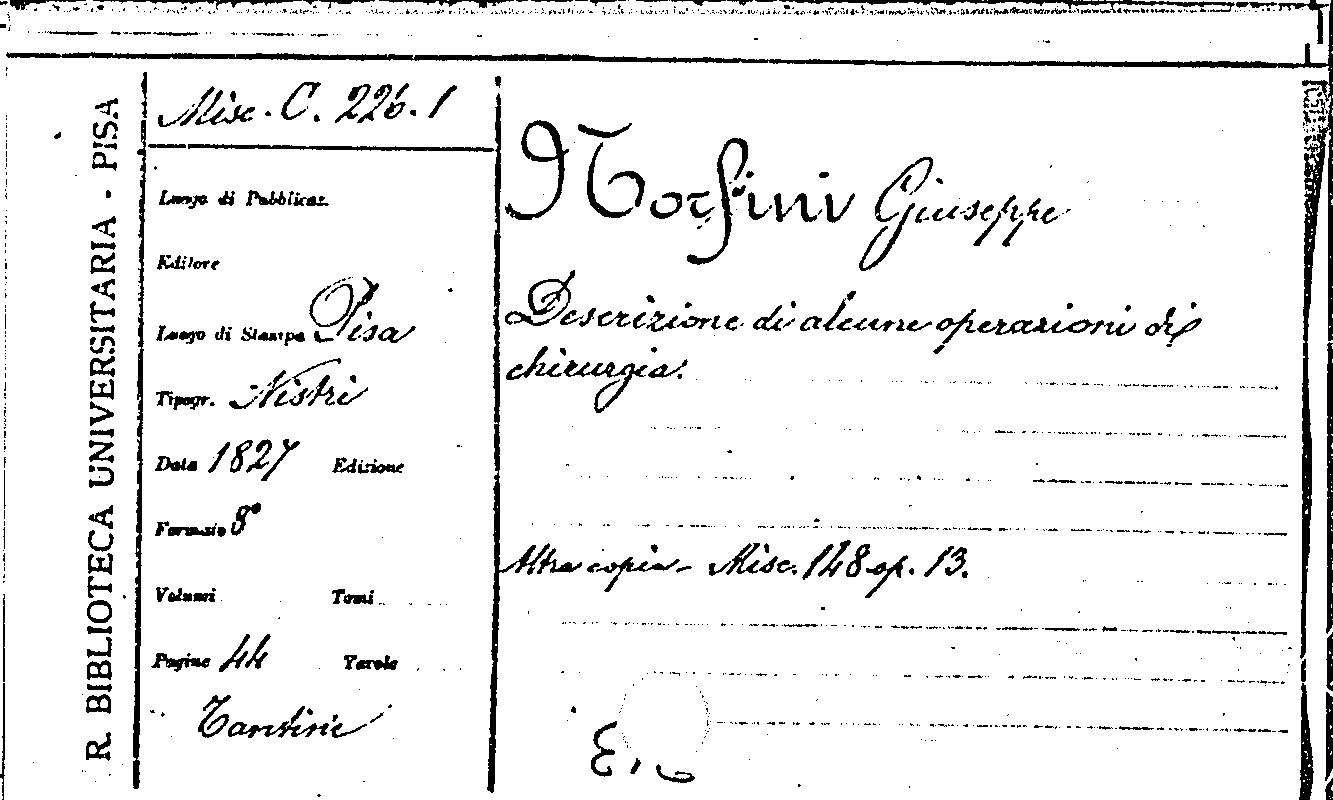 R. BIBLIOTECA UNIVERSITARIA - PISA
Misc. C. 226.1
Luogo di Pubblicaz.
Editore
Luogo di Stampa Pisa
Tipogr. Nistri
Data 1827 Edizione
Formato 8°
Volumi Tomi
Pagine 44 Tavole
Giuseppe
Descrizione di alcune operazioni di
chirurgia.
Altra copia - Misc. 148 op. 13.